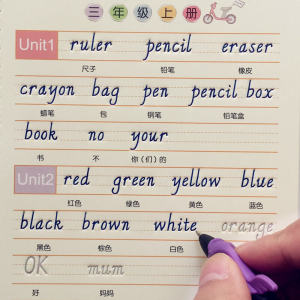 三年级上册
Unit1 ruler pencil eraser
尺子 铅笔 橡皮
crayon bag pen pencil box
蜡笔 包 钢笔 铅笔盒
book no your
书 不 你(们)的
Unit2 red green yellow blue
红色 绿色 黄色 蓝色
black brown white orange
黑色 棕色 白色
OK mum
好 妈妈